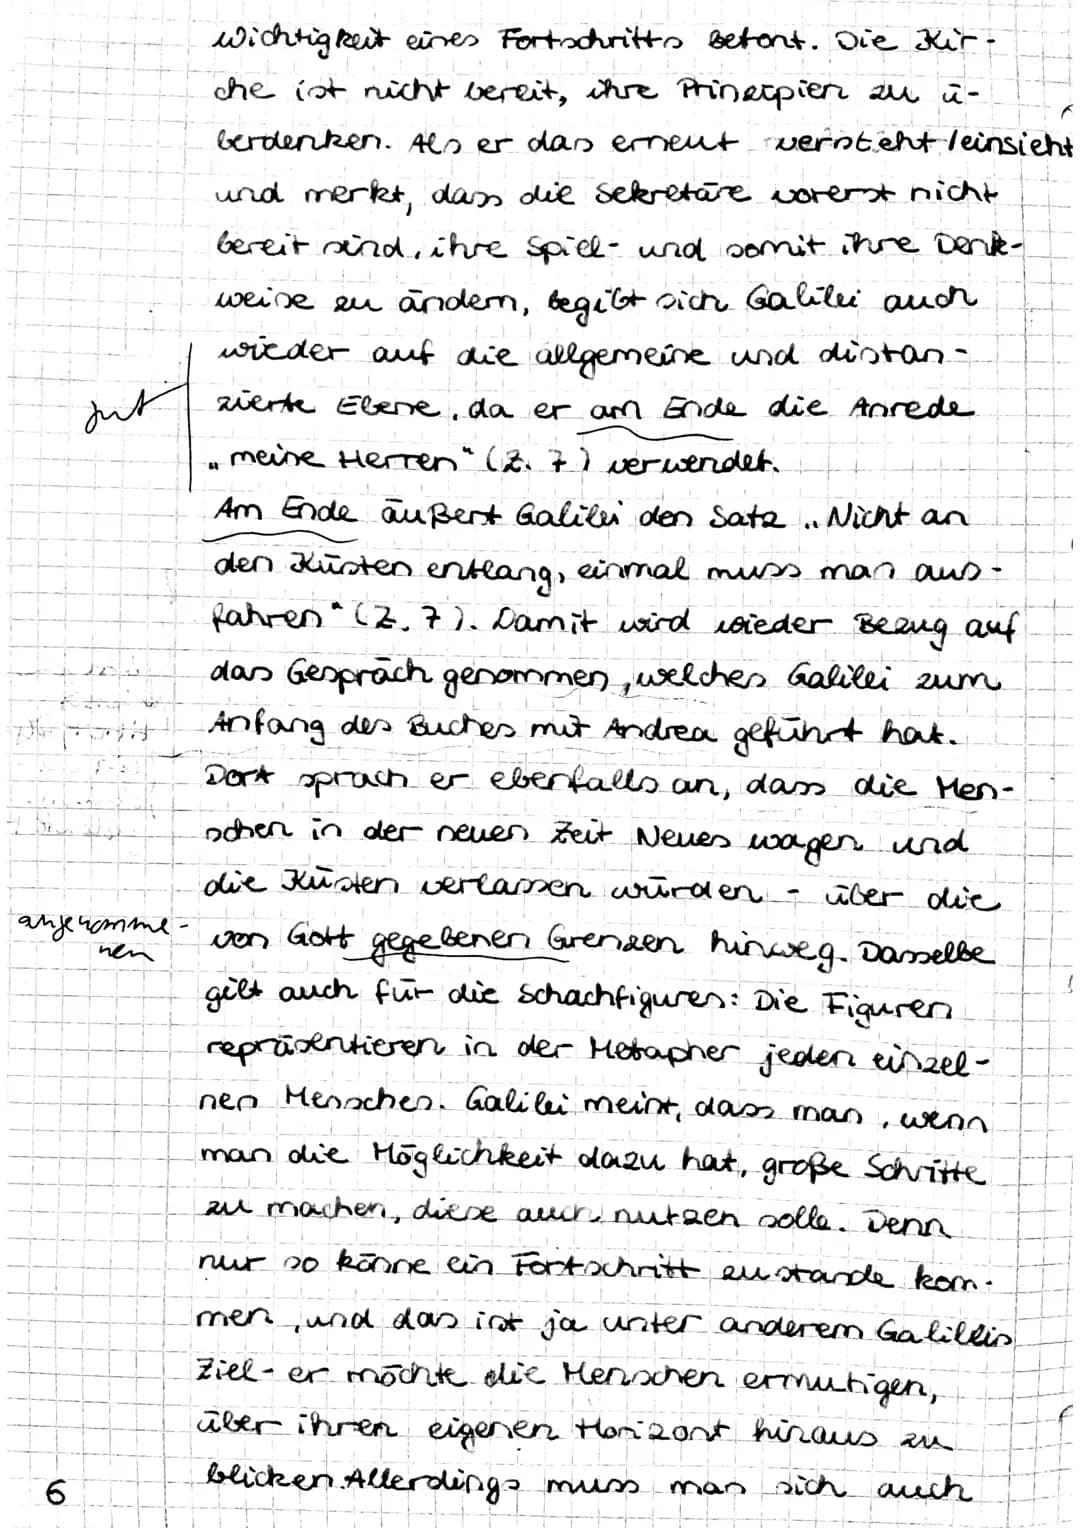 wichtigkeit eines Fortschritts betont. Die Kir-
che ist nicht bereit, ihre Prinzipien zu ü-
berdenken. Als er das erneut versteht/einsieht
und merkt, dass die Sekretäre vorerst nicht
bereit sind, ihre Spiel- und somit ihre Denk-
weise zu ändern, begibt sich Galilei auch
wieder auf die allgemeine und distan-
gut
zierte Ebene, da er am Ende die Anrede
„meine Herren" (Z. 7) verwendet.
Am Ende äußert Galilei den Satz „Nicht an
den Küsten entlang, einmal muss man aus-
fahren" (Z. 7). Damit wird wieder Bezug auf
das Gespräch genommen, welches Galilei zum
Anfang des Buches mit Andrea geführt hat.
Dort sprach er ebenfalls an, dass die Men-
schen in der neuen Zeit Neues wagen und
die Küsten verlassen würden - über die
angenomme-
nen
von Gott gegebenen Grenzen hinweg. Dasselbe
gilt auch für die Schachfiguren: Die Figuren
repräsentieren in der Metapher jeden einzel-
nen Menschen. Galilei meint, dass man, wenn
man die Möglichkeit dazu hat, große Schritte
zu machen, diese auch nutzen solle. Denn
nur so könne ein Fortschritt zustande kom-
men, und das ist ja unter anderem Galileis
Ziel - er möchte die Menschen ermutigen,
über ihren eigenen Horizont hinaus zu
blicken. Allerdings muss man sich auch
6